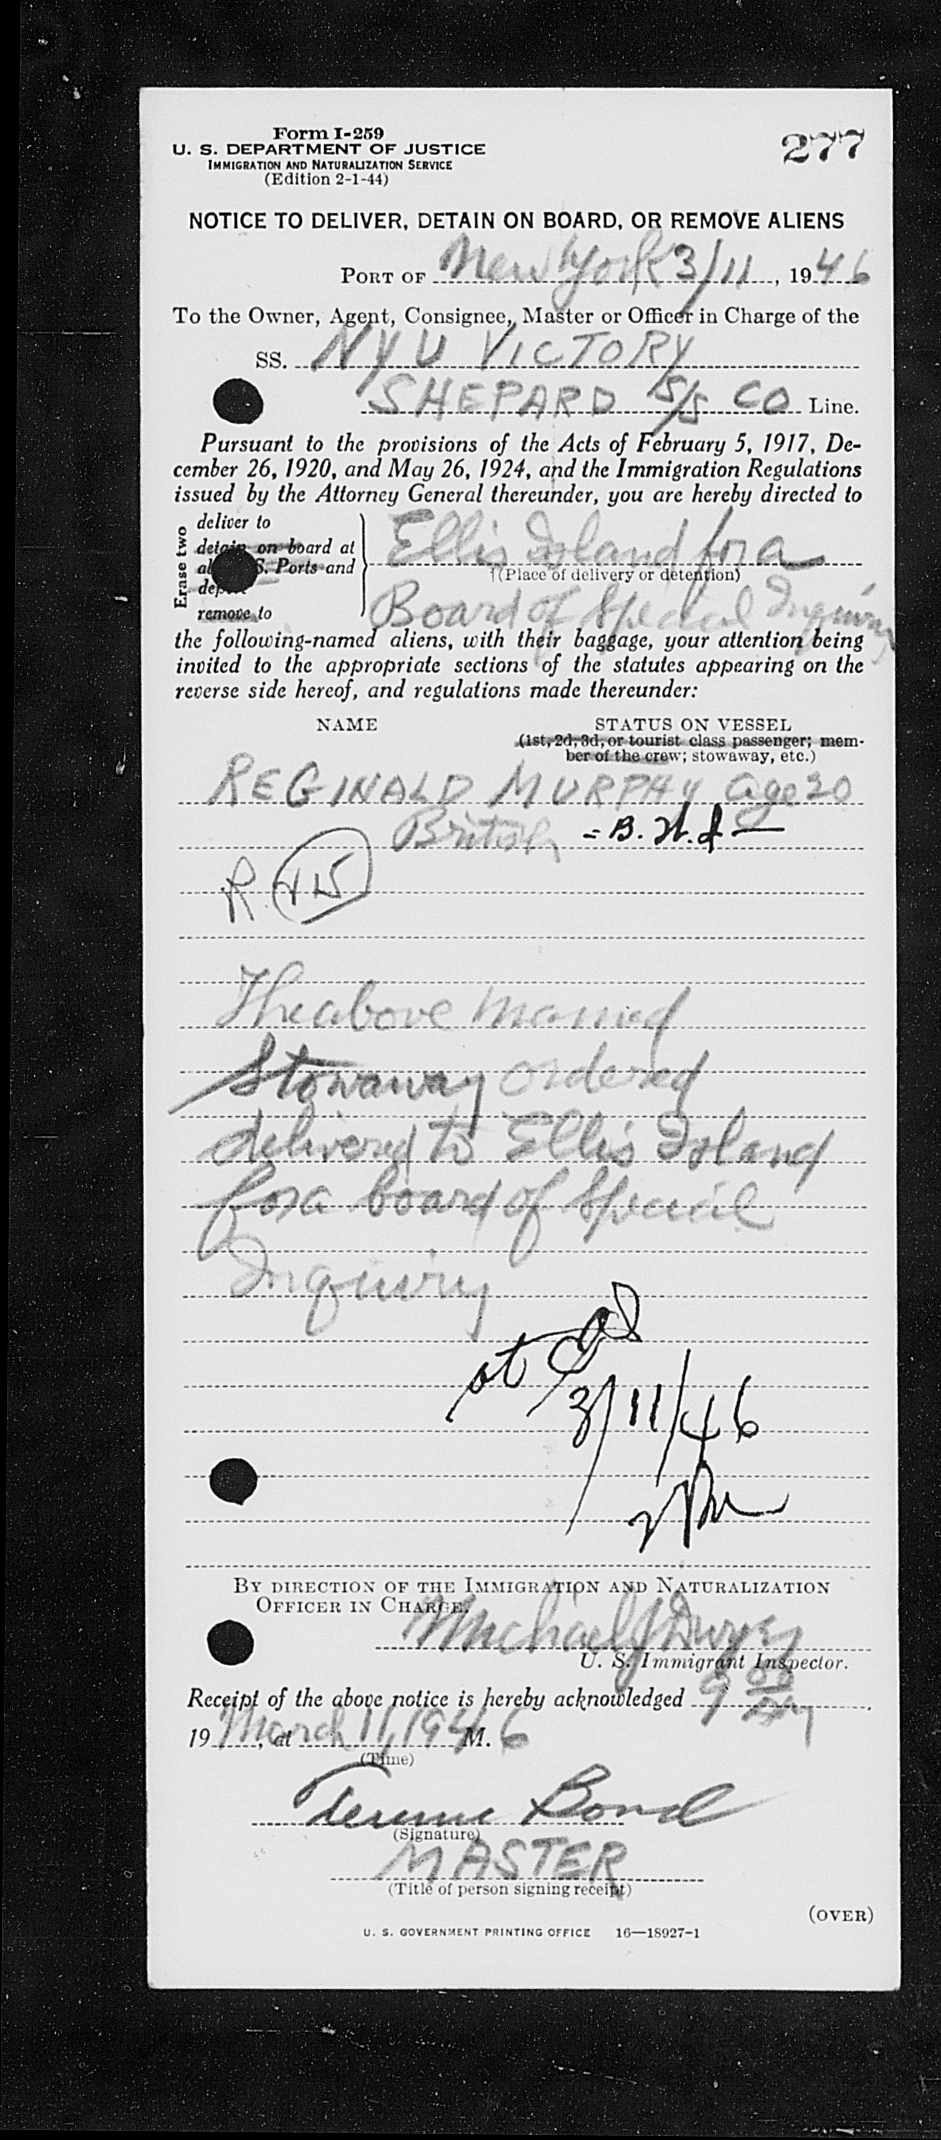 Form I-259
U. S. DEPARTMENT OF JUSTICE
IMMIGRATION AND NATURALIZATION SERVICE
(Edition 2-1-44)
277
NOTICE TO DELIVER, DETAIN ON BOARD, OR REMOVE ALIENS
PORT OF New York 3/11, 1946
To the Owner, Agent, Consignee, Master or Officer in Charge of the
SS. NYU VICTORY
SHEPARD S/S CO Line.
Pursuant to the provisions of the Acts of February 5, 1917, De-
cember 26, 1920, and May 26, 1924, and the Immigration Regulations
issued by the Attorney General thereunder, you are hereby directed to
Erase two
deliver to
detain on board at
al S. Ports and
dep
remove to
Ellis Island for a
(Place of delivery or detention)
Board of Special Inquiry
the following-named aliens, with their baggage, your attention being
invited to the appropriate sections of the statutes appearing on the
reverse side hereof, and regulations made thereunder:
NAME
STATUS ON VESSEL
(1st, 2d, 3d, or tourist class passenger; mem-
ber of the crew; stowaway, etc.)
REGINALD MURPHY age 20
British = B. W. I —
R
The above named
Stowaway ordered
delivered to Ellis Island
for a board of Special
Inquiry
at
3/11/46
BY DIRECTION OF THE IMMIGRATION AND NATURALIZATION
OFFICER IN CHARGE.
Michael J Dwyer
U. S. Immigrant Inspector.
Receipt of the above notice is hereby acknowledged 9 00 AM
19 March 11, 1946, at M.
(Time)
Bond
(Signature)
MASTER
(Title of person signing receipt)
(OVER)
U. S. GOVERNMENT PRINTING OFFICE 16—18927-1